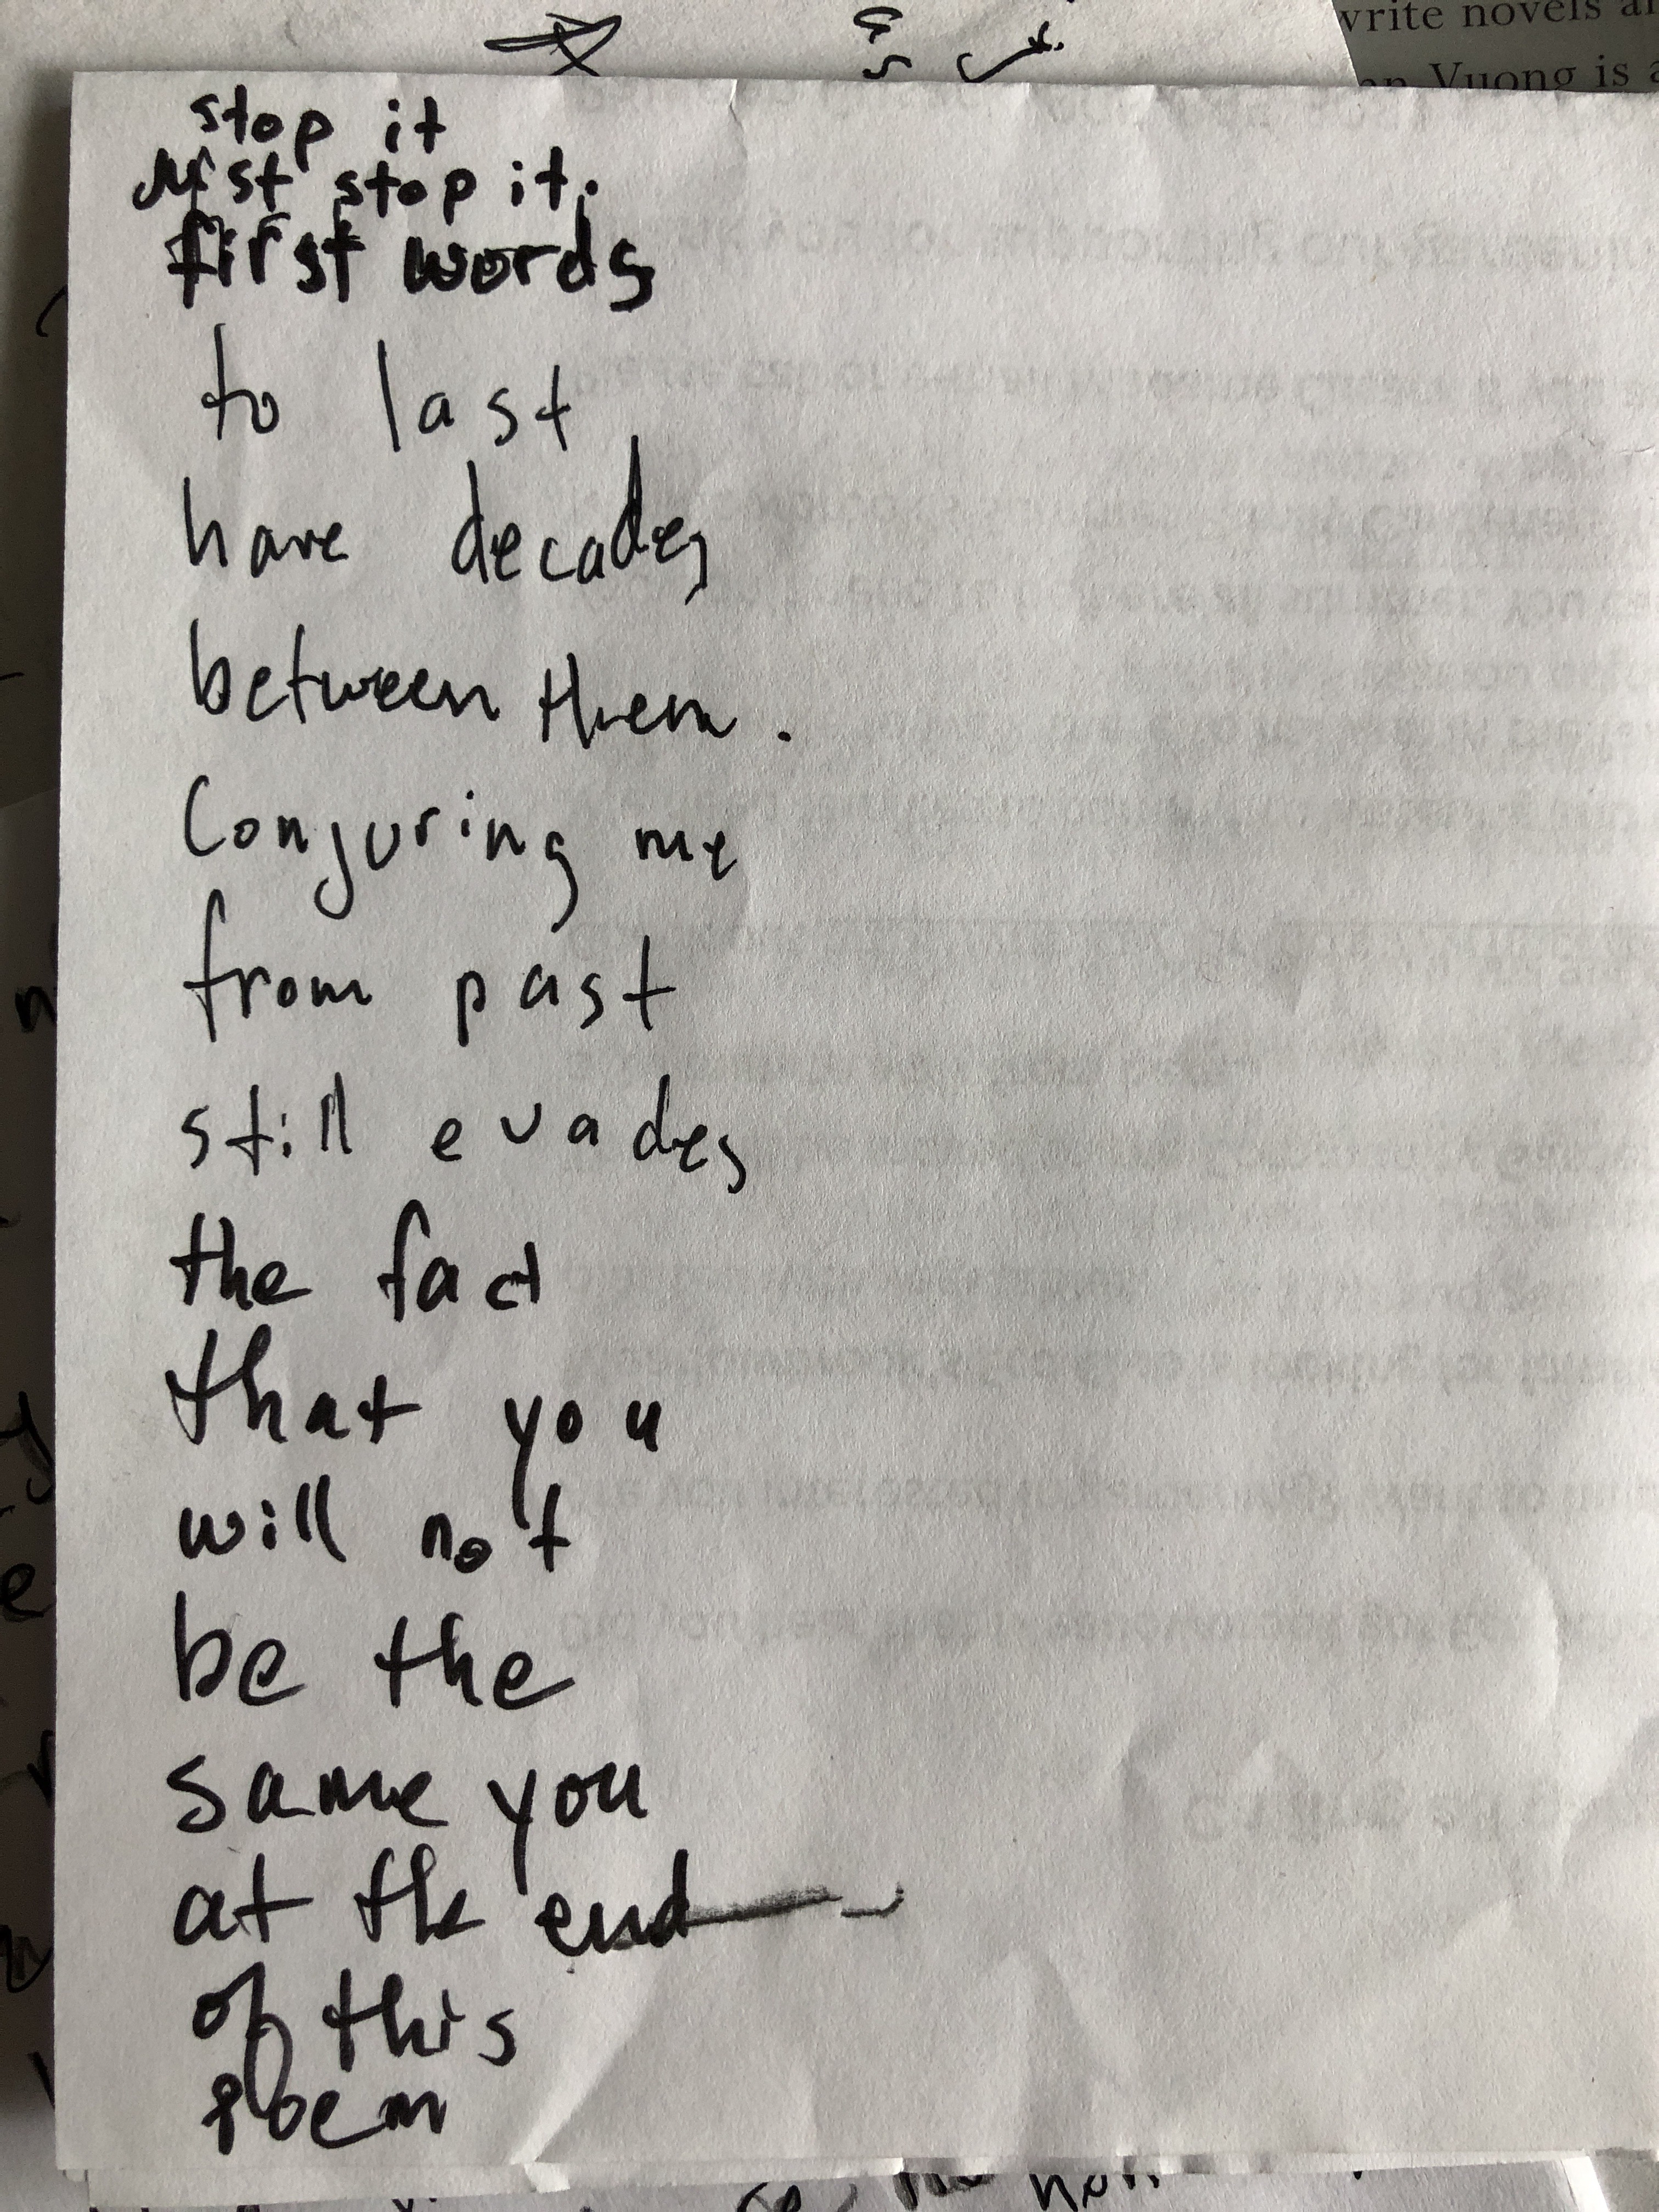 write novels
Vuong is
stop it
just stop it.
first words
to last
have decades
between them.
Conjuring me
from past
still evades
the fact
that you
will not
be the
same you
at the end
of this
poem